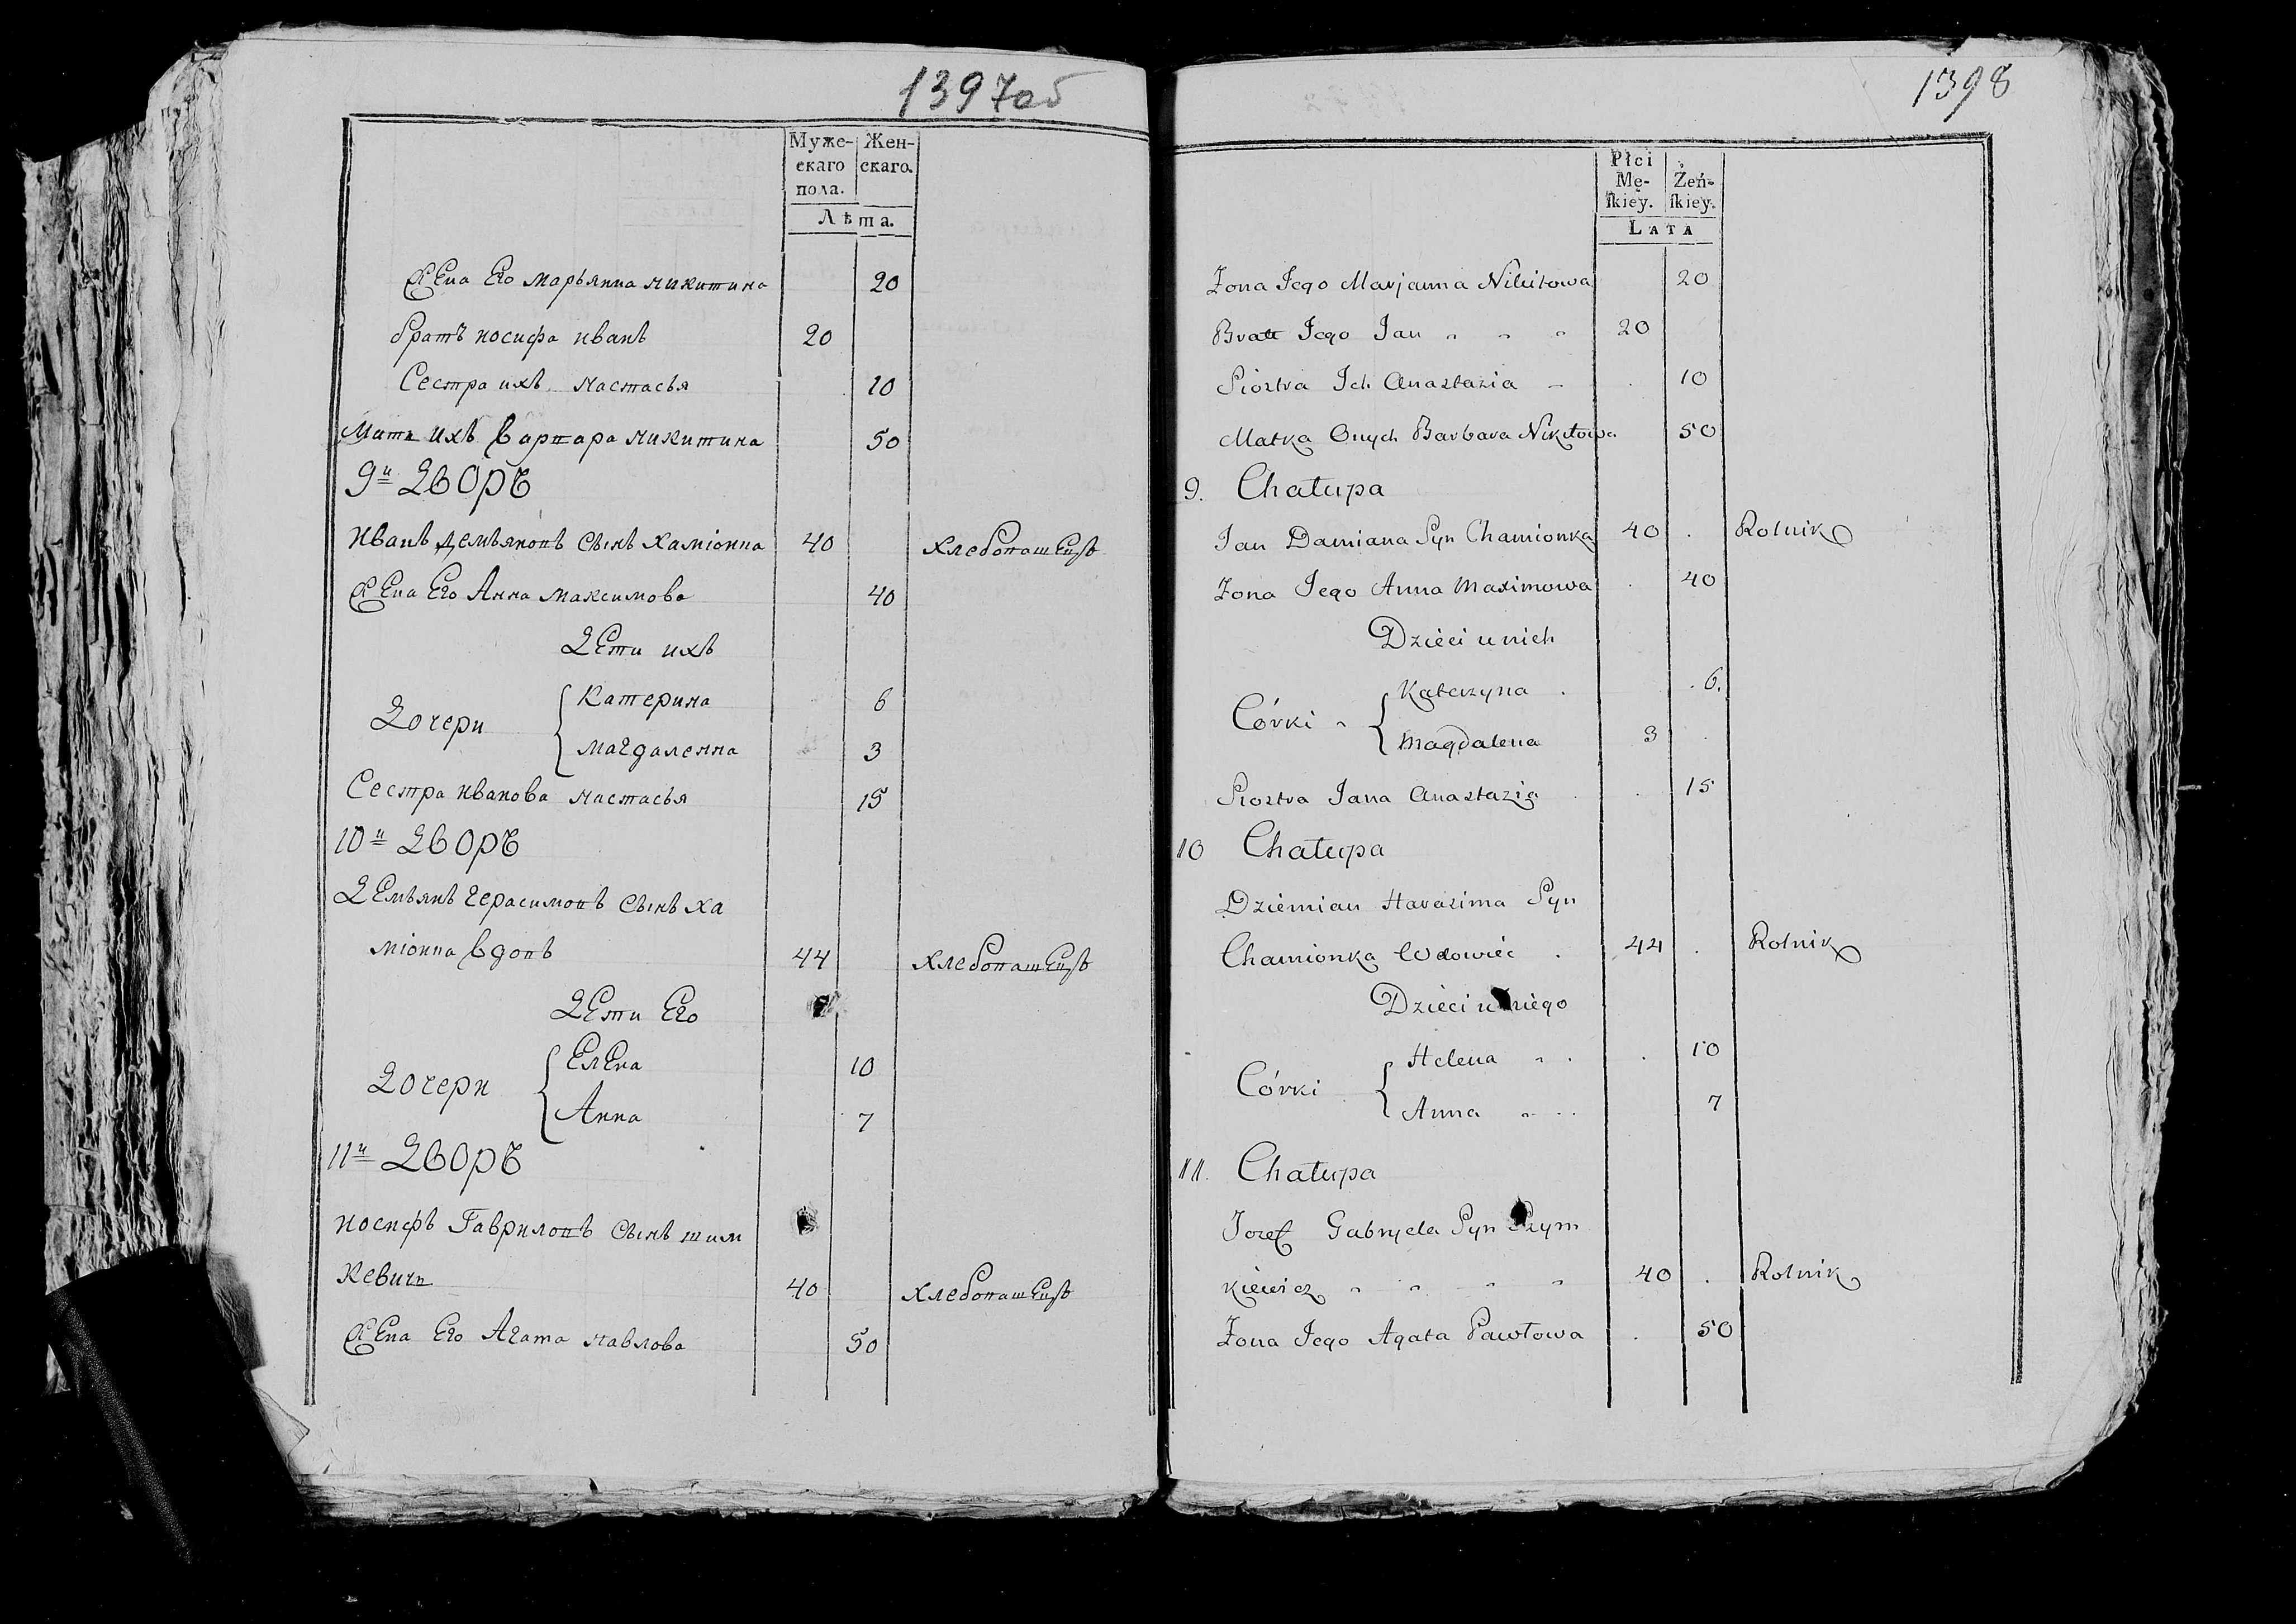 1397об
Муже- Жен-
скаго скаго.
пола.
Лѣта.
Жена Его марьянна никитина 20
братъ иосифа иванъ 20
Сестра ихъ настасья 10
Мать ихъ варвара никитина 50
9й Дворъ
иванъ демьяновъ сынъ хамионка 40 хлебопашецъ
Жена Его Анна максимова 40
Дети ихъ
Дочери { Катерина 6
магдаленна 3
Сестра иванова настасья 15
10й Дворъ
Демьянъ герасимовъ сынъ ха
мионка вдовъ 44 хлебопашецъ
Дети Его
Дочери { Елена 10
Анна 7
11й Дворъ
иосифъ Гавриловъ сынъ шим
кевичь 40 хлебопашецъ
Жена Его Агата павлова 50
1398
Płci
Mę- Żeń-
ſkiey. ſkiey.
LATA
Żona Jego Marjanna Nikitowa 20
Bratt Jego Jan " " " 20
Siostra Ich Anastazia 10
Matka Onych Barbara Nikitowa 50
9. Chałupa
Jan Damiana Syn Chamionka 40 Rolnik
Żona Jego Anna Maximowa 40
Dzieci u nich
Córki { Katerzyna 6.
Magdalena 3
Siostra Jana Anastazia 15
10 Chałupa
Dziemian Harasima Syn
Chamionka Wdowiec 44 Rolnik
Dzieci u niego
Córki { Helena 10
Anna 7
11. Chałupa
Jozef Gabryela Syn Szym
kiewicz " " " " 40 Rolnik
Żona Jego Agata Pawłowa 50